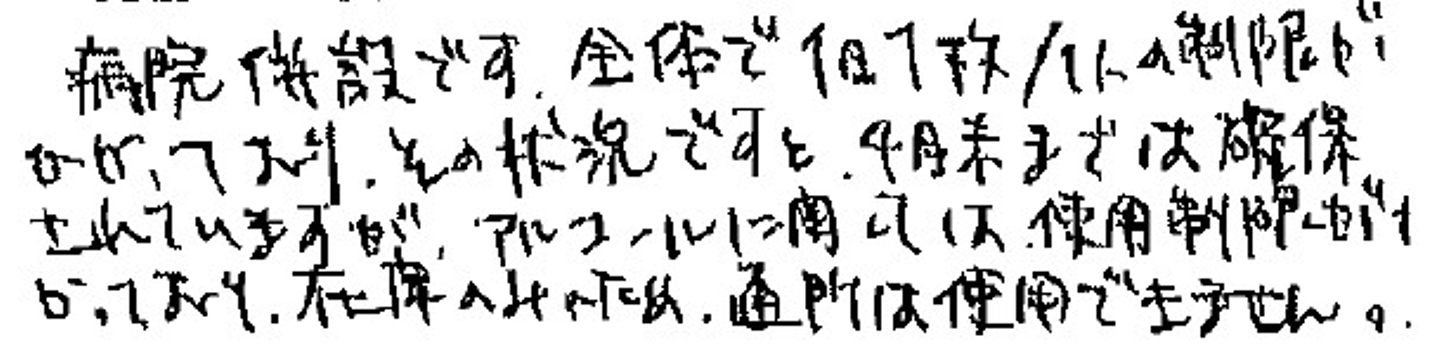 病院併設です。全体で1日1枚/1人の制限が
かかっており、その状況ですと、4月末までは確保
されていますが、アルコールに関しては、使用制限がか
かっており、在庫のみのため、通所は使用できません。